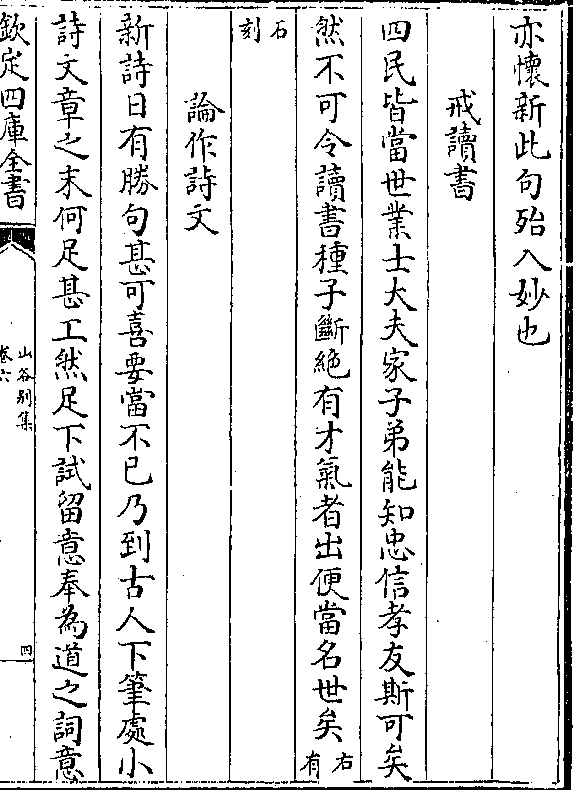 亦懷新此句殆入妙也
戒讀書
四民皆當世業士大夫家子弟能知忠信孝友斯可矣
然不可令讀書種子斷絶有才氣者出便當名世矣右有
石刻
論作詩文
新詩日有勝句甚可喜要當不已乃到古人下筆處小
詩文章之末何足甚工然足下試留意奉為道之詞意
欽定四庫全書
山谷别集
卷六
四